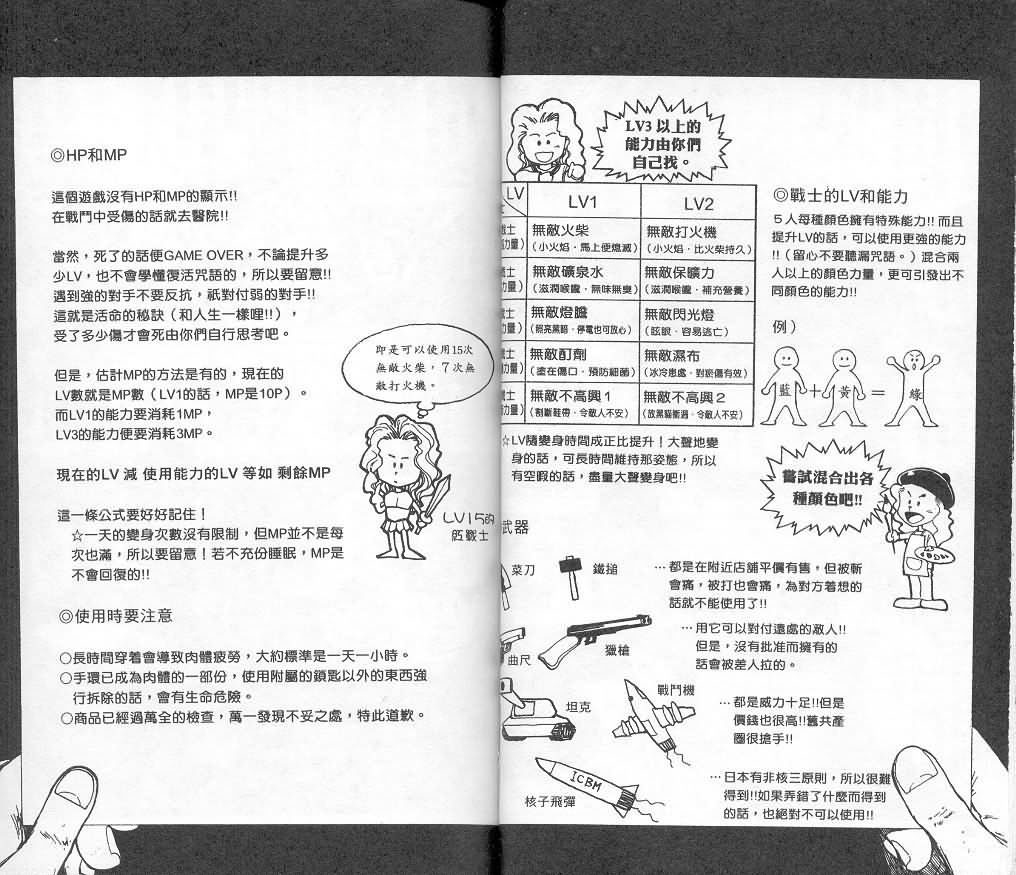 ◎戰士的LV和能力
５人每種顏色擁有特殊能力!!而且
提升LV的話，可以使用更強的能力
!!（留心不要聽漏咒語。）混合兩
人以上的顏色力量，更可引發出不
同顏色的能力!!
例）
藍＋黃＝綠
嘗試混合出各
種顏色吧!!
LV3 以上的
能力由你們
自己找。
LV LV1 LV2
無敵火柴 無敵打火機
（小火焰．馬上便熄滅） （小火焰．比火柴持久）
無敵礦泉水 無敵保曠力
（滋潤喉嚨．無味無臭） （滋潤喉嚨．補充營養）
無敵燈膽 無敵閃光燈
（照亮黑暗．停電也可放心） （眩眼．容易逃亡）
無敵酊劑 無敵濕布
（塗在傷口．預防細菌） （冰冷患處．對瘀傷有效）
無敵不高興１ 無敵不高興２
（割斷鞋帶．令敵人不安） （放黑貓衝過．令敵人不安）
☆LV隨變身時間成正比提升！大聲地變
身的話，可長時間維持那姿態，所以
有空暇的話，盡量大聲變身吧!!
武器
菜刀 鐵搥
…都是在附近店舖平價有售，但被斬
會痛，被打也會痛，為對方着想的
話就不能使用了!!
曲尺 獵槍
…用它可以對付遠處的敵人!!
但是，沒有批准而擁有的
話會被差人拉的。
坦克 戰鬥機
…都是威力十足!!但是
價錢也很高!!舊共產
圈很搶手!!
ICBM
核子飛彈
…日本有非核三原則，所以很難
得到!!如果弄錯了什麼而得到
的話，也絕對不可以使用!!
◎HP和MP
這個遊戲沒有HP和MP的顯示!!
在戰鬥中受傷的話就去醫院!!
當然，死了的話便GAME OVER，不論提升多
少LV，也不會學懂復活咒語的，所以要留意!!
遇到強的對手不要反抗，祇對付弱的對手!!
這就是活命的秘訣（和人生一樣哩!!），
受了多少傷才會死由你們自行思考吧。
但是，估計MP的方法是有的，現在的
LV數就是MP數（LV1的話，MP是10P）。
而LV1的能力要消耗1MP，
LV3的能力便要消耗3MP。
現在的LV 減 使用能力的LV 等如 剩餘MP
這一條公式要好好記住！
☆一天的變身次數沒有限制，但MP並不是每
次也滿，所以要留意！若不充份睡眠，MP是
不會回復的!!
即是可以使用15次
無敵火柴，７次無
敵打火機。
LV15的
戰士
◎使用時要注意
○長時間穿着會導致肉體疲勞，大約標準是一天一小時。
○手環已成為肉體的一部份，使用附屬的鎖匙以外的東西強
行拆除的話，會有生命危險。
○商品已經過萬全的檢查，萬一發現不妥之處，特此道歉。